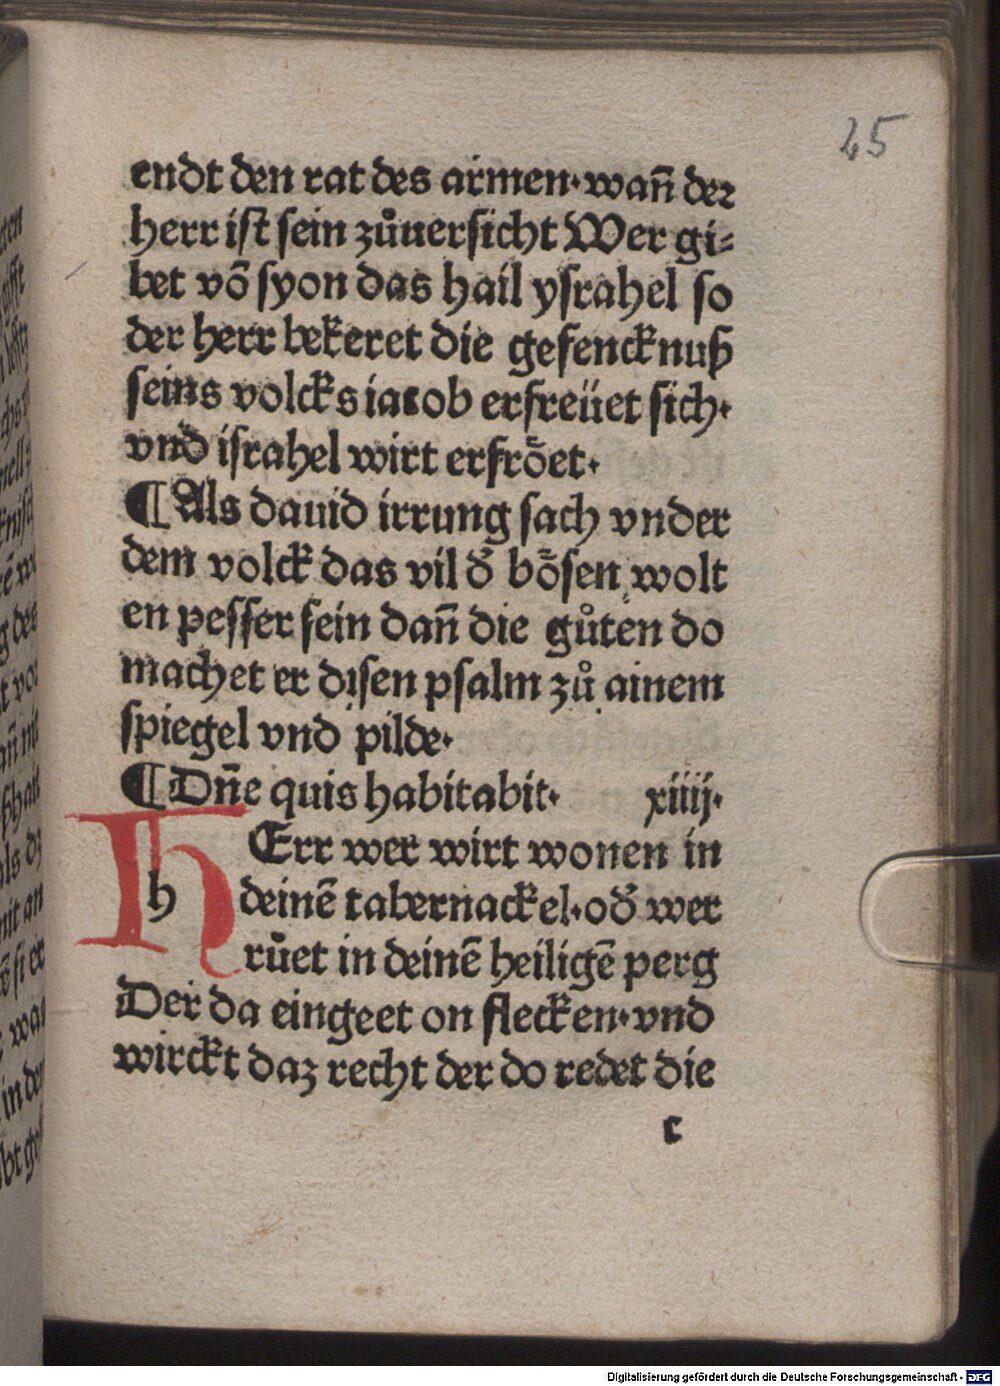 25
endt den rat des armen·wañ der
herr ist sein zůuersicht Wer gi⸗
bet võ syon das hail ysrahel so
der herr bekeret die gefencknuß
seins volcks iacob erfreüet sich·
vnd israhel wirt erfröet·
¶Als dauid irrung sach vnder
dem volck das vil d̄ bösen wolt
en pesser sein dañ die gůten do
machet er disen psalm zů ainem
spiegel vnd pilde·
¶Dñe quis habitabit· xiiij·
HErr wer wirt wonen in
h deinē tabernackel·od̄ wer
růet in deinē heiligē perg
Der da eingeet on flecken·vnd
wirckt daz recht der do redet die
c
Digitalisierung gefördert durch die Deutsche Forschungsgemeinschaft - DFG